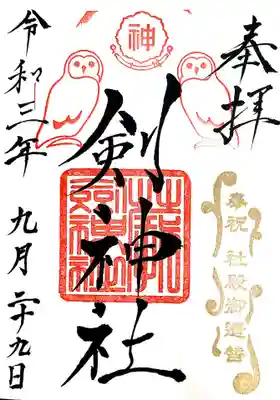 奉拝
奉祝 社殿御造替
神
剣神社
令和三年 九月二十九日